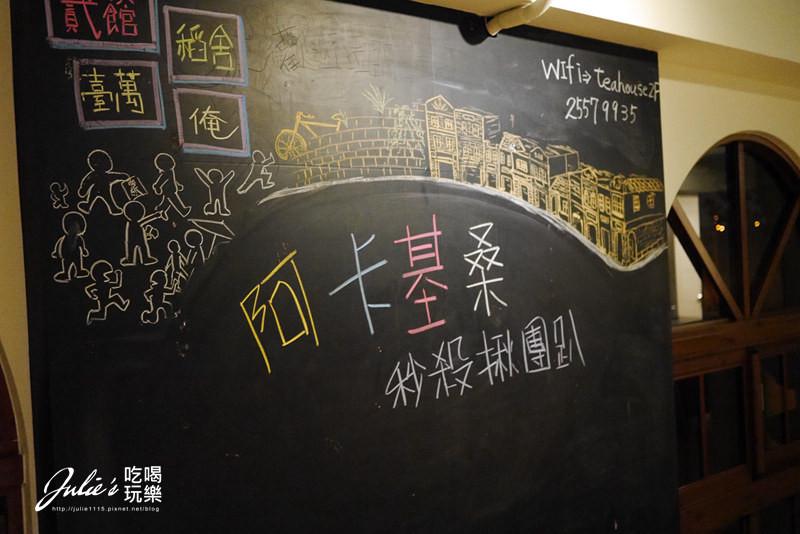 貳館
稻舍
臺萬
俺
WIfi⇒ teahouse2F
25579935
阿卡基桑
秒殺揪團趴
Julie's 吃喝玩樂
http://julie1115.pixnet.net/blog